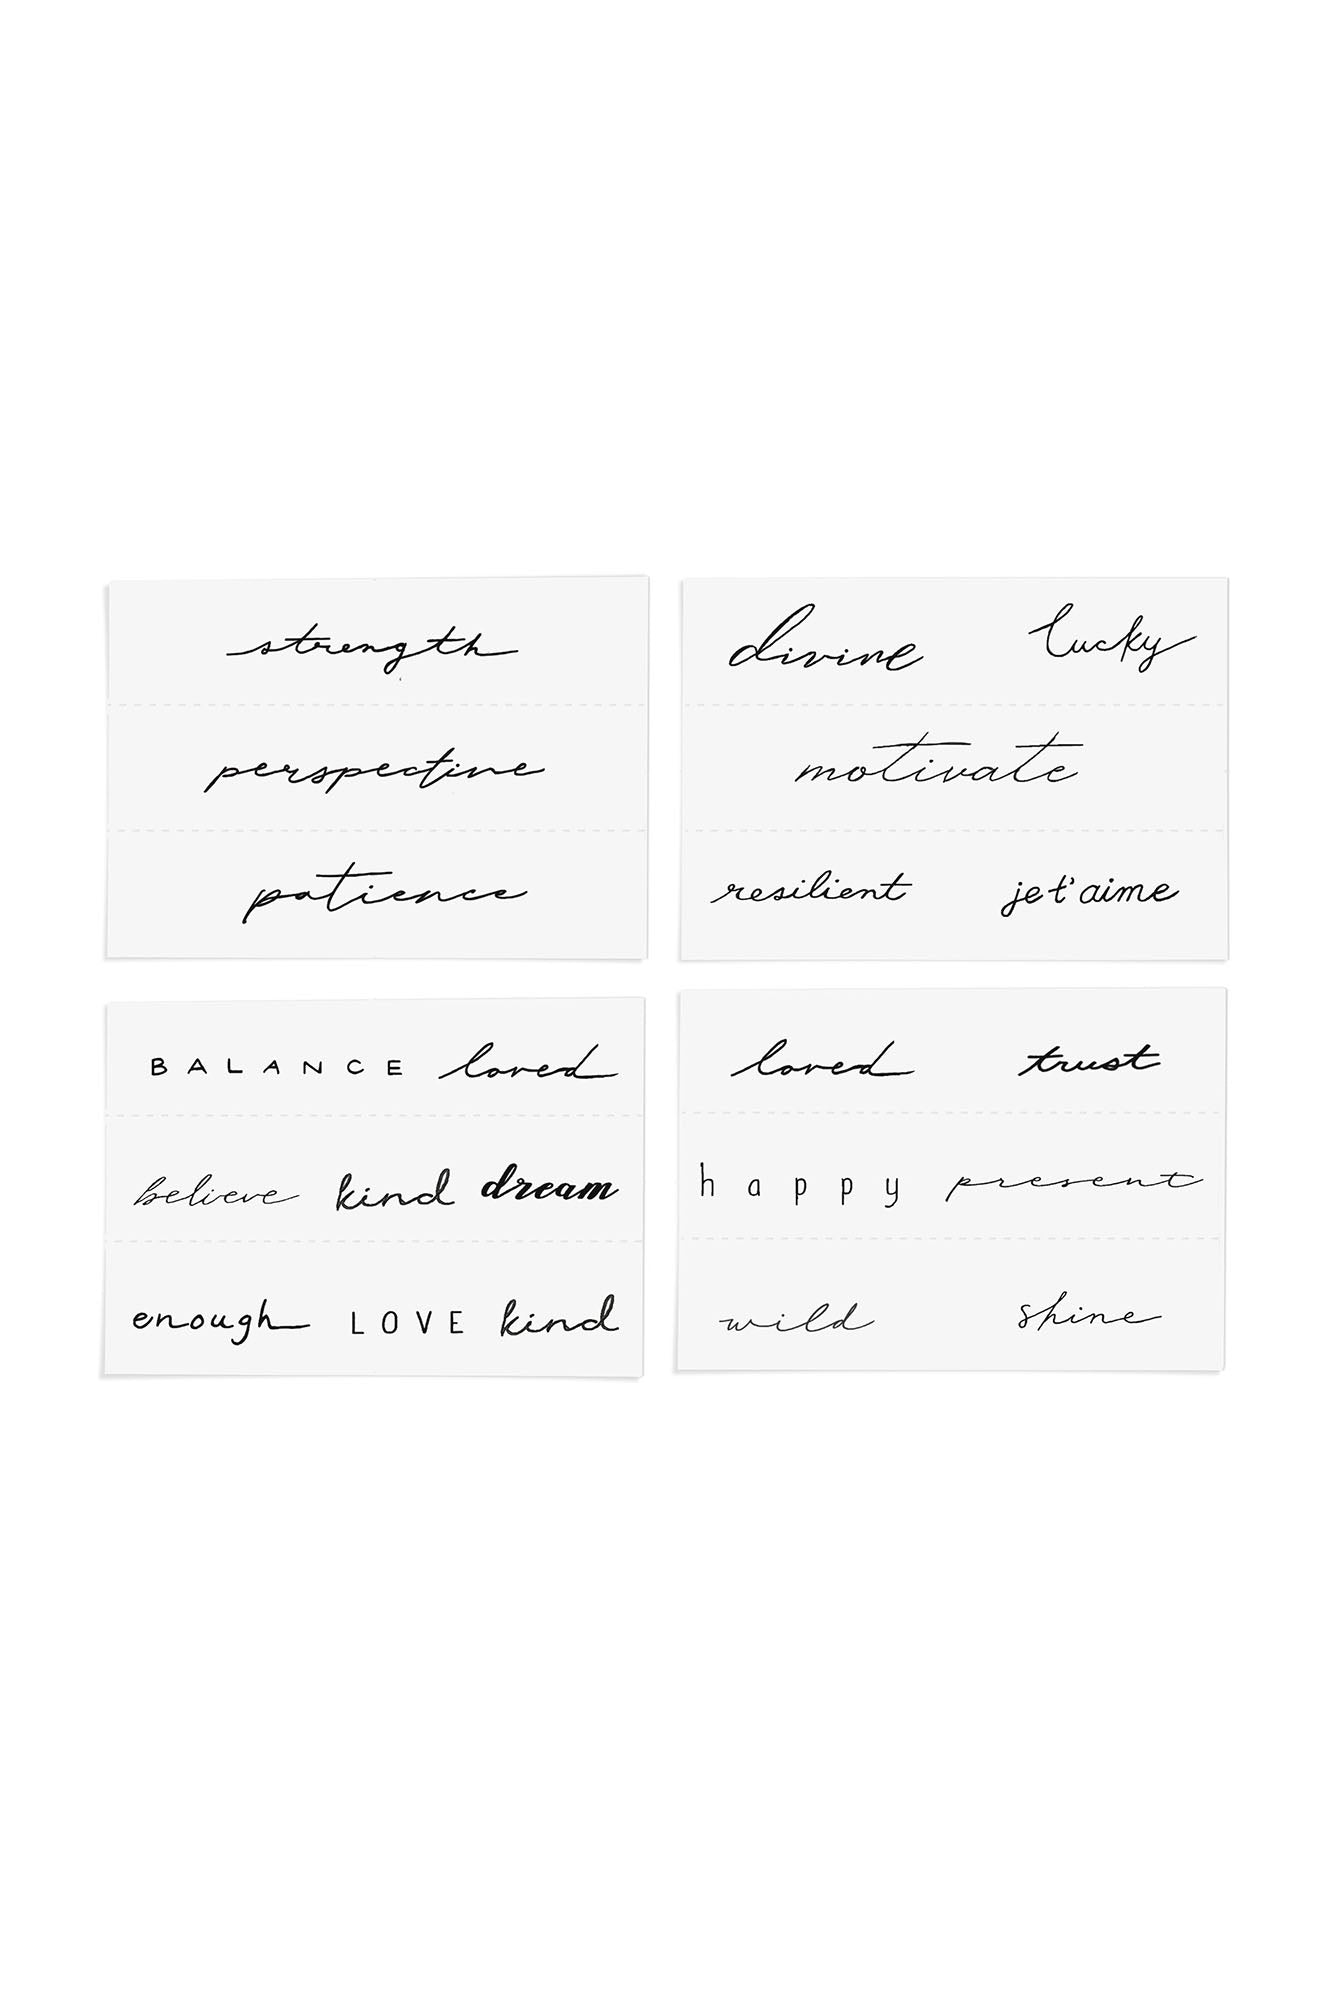 strength
perspective
patience
divine lucky
motivate
resilient je t'aime
BALANCE loved
believe kind dream
enough LOVE kind
loved trust
happy present
wild shine